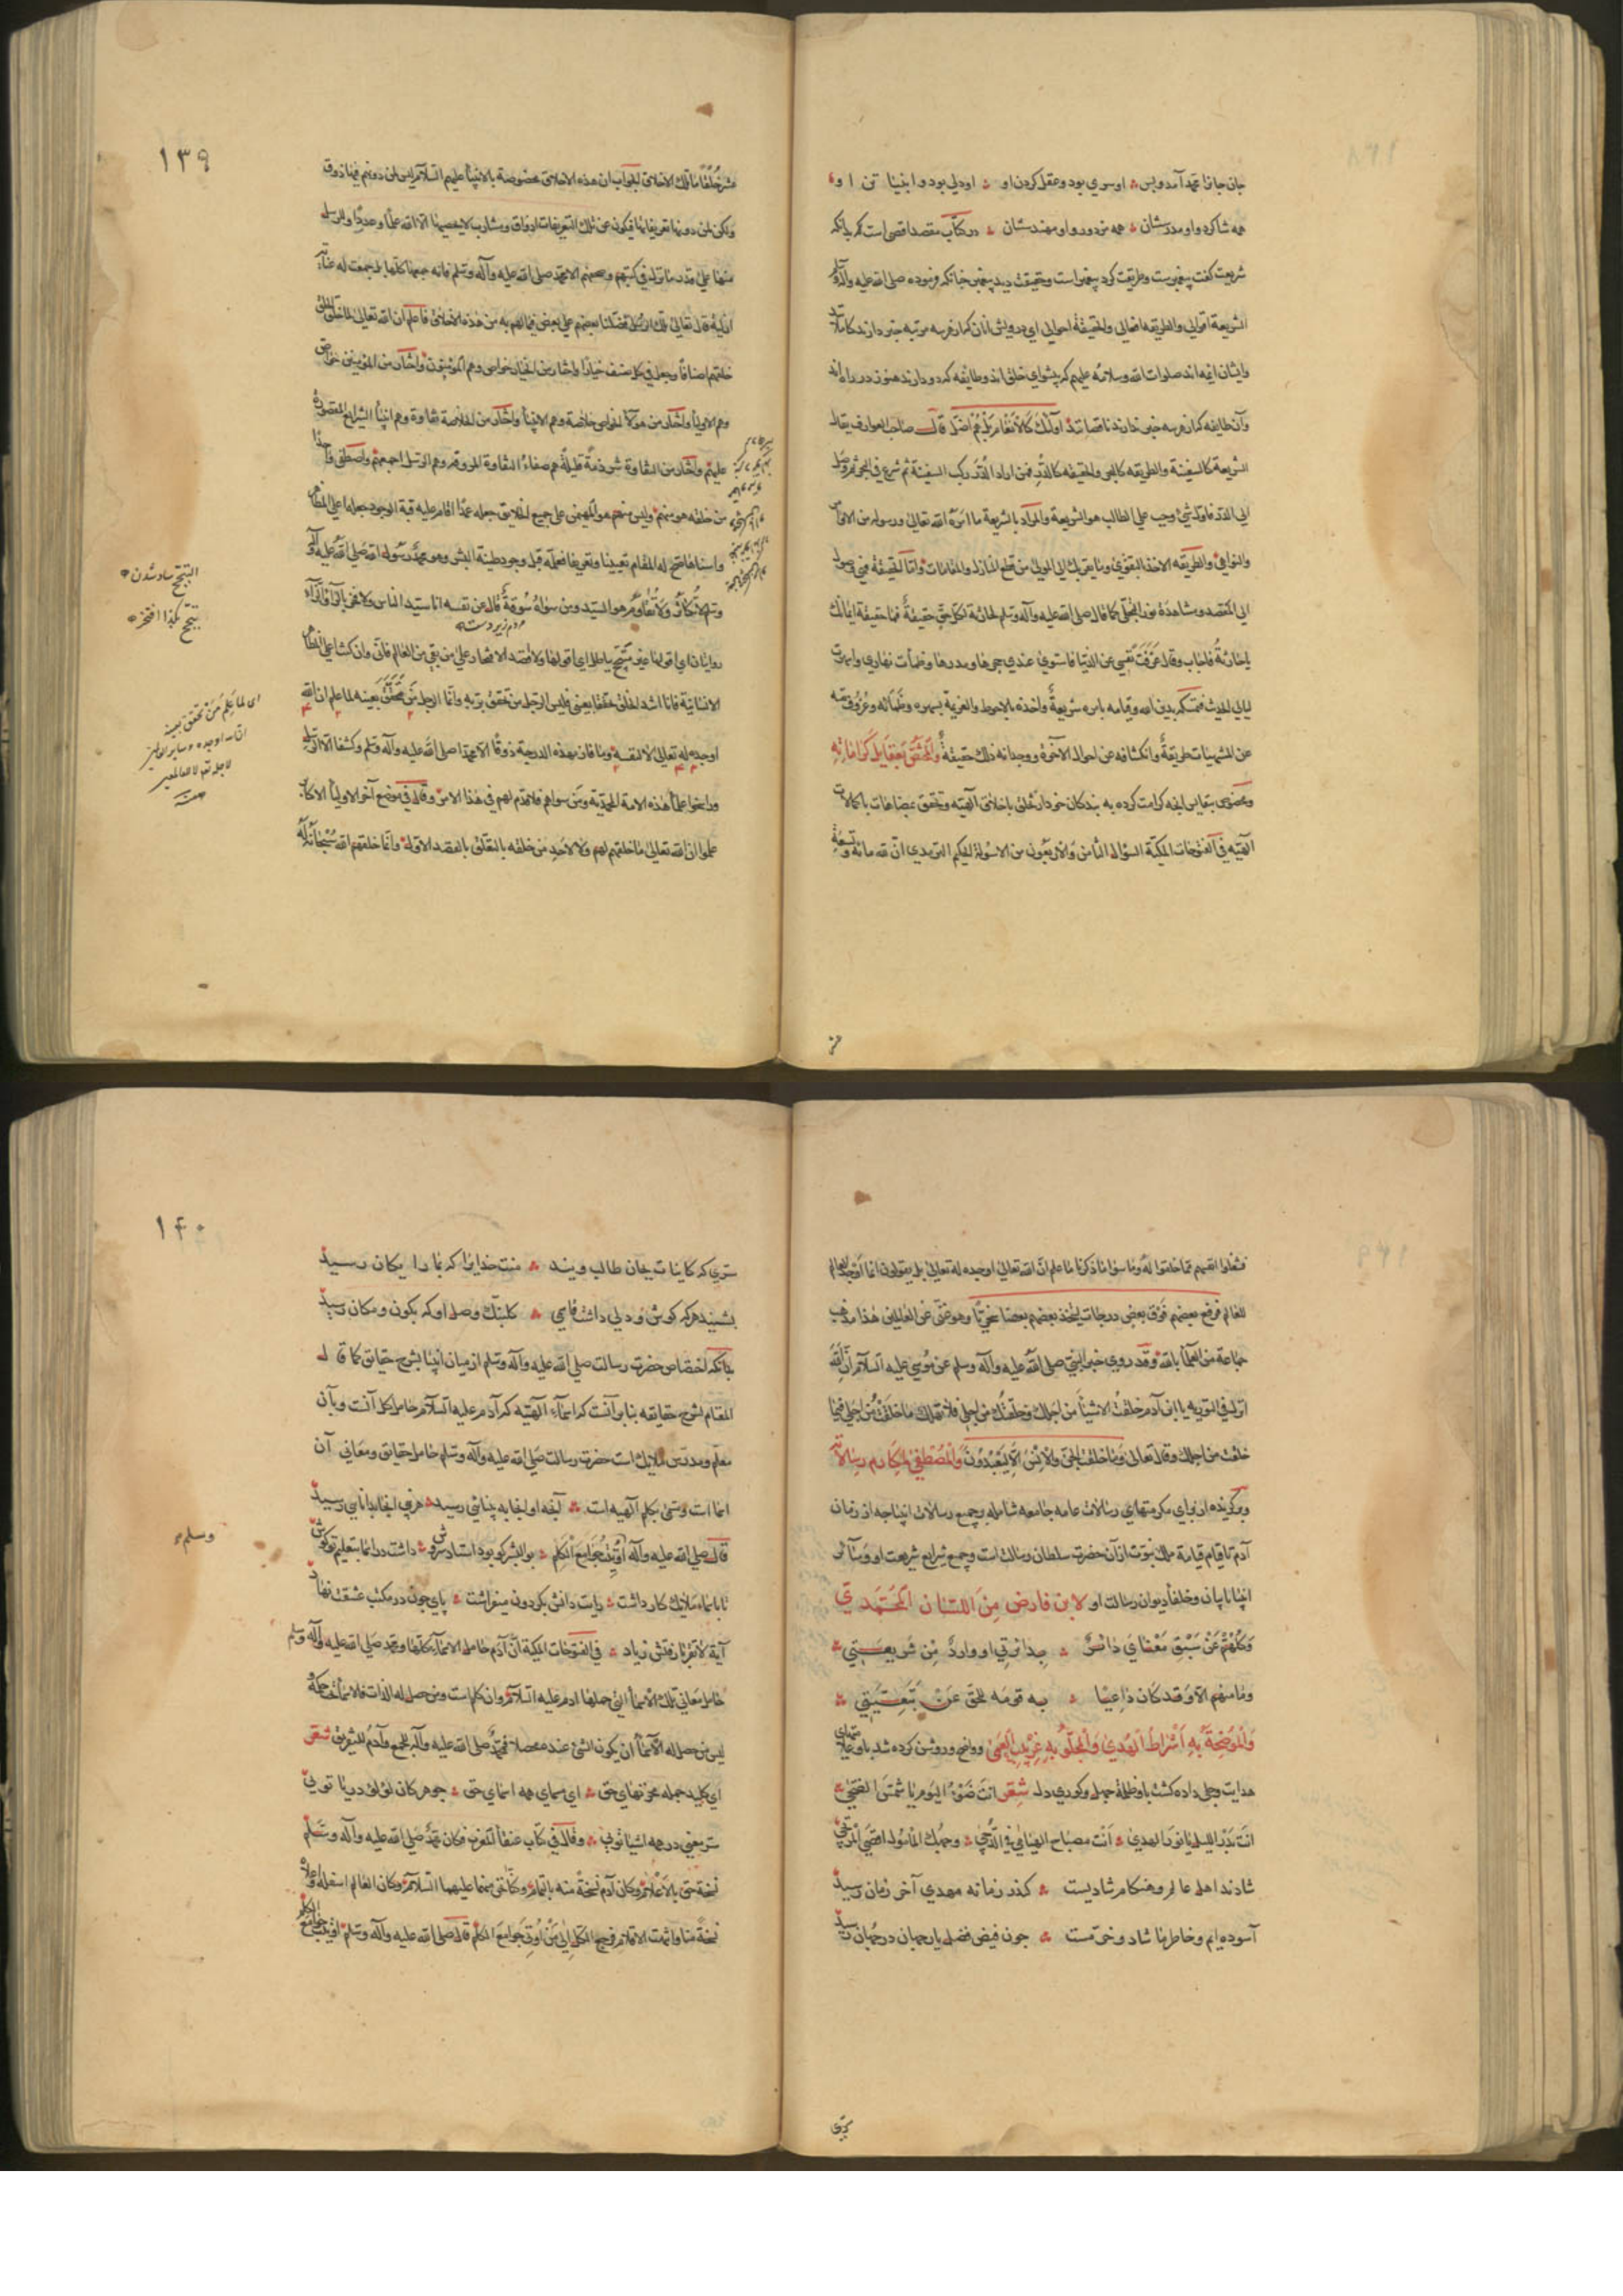 جان جانها محمد آمد و بس اوسری بود و عقل کردن او اودلی بود و انبیا تن او
همه شاکرد و او مدرسشان همه مزدور و او مهندسشان در کتاب مقصد اقصی است که بدانکه
شریعت کفت پیغمبرست وطریقت کرد پیغمبر است وحقیقت دید پیغمبر چنانکه فرموده صلی الله علیه وآله وسلم
الشریعة اقوالی والطریقه افعالی والحقیقة احوالی ای درویش انان که از هر سه مرتبه خبر دارند کاملانند
وایشان ایمه اند صلوات الله وسلامه علیهم که پیشوای خلق اند وطایفه که دو دارند هنوز در راه اند
وآن طایفه که از هر سه خبر ندارند ناقصانند اولئک کالانعام بل هم اضل قال صاحب العوارف یقال
الشریعة کالسفینة والطریقه کالبحر والحقیقه کالدر فمن اراد الدر رکب السفینة ثم شرع فی البحر ثم وصل
الی الدر فاول شئ وجب علی الطالب هو الشریعة والمراد بالشریعة ما امره الله تعالی ورسوله من الاوامر
والنواهی والطریقه الاخذ بالتقوی وما یقربک الی المولی من قطع المنازل والمقامات واما الحقیقة فهی وصول
الی المقصد ومشاهدة نور التجلی کما قال صلی الله علیه وآله وسلم لحارثه لکل حق حقیقة فما حقیقة ایمانک
یا حارثة فاجاب وقال عزفت نفسی عن الدنیا فاستوی عندی حجرها ومدرها وظمأت نهاری واسهرت
لیالی الحدیث فتمسکه بدین الله وقیامه بامره شریعة واخذه بالاحوط والعزیمة بسهره وظمائه وعزوف نفسه
عن المشتهیات طریقة وانکشافه عن احوال الآخرة ووجدانه ذلک حقیقة والمختص بعقایل کراماته
ومخصوص بنفایس انچه کرامت کرده به بندکان خود از تخلق باخلاق الهیه وتحقق بمضاهات با کمالات
الهیه فی الفتوحات المکیة السؤال الثامن والاربعون من الاسولة للحکیم الترمدی ان لله مائة وتسعة
١٣٩
عشر خلقا ما تلک الاخلاق الجواب ان هذه الاخلاق مخصوصة بالانبیاء علیهم السلام لیس لمن دونهم فیها ذوق
ولکن لمن دونها تعریفاتها فیکون عن تلک التعریفات اذواق ومشارب لا یحصیها الا الله علما وعددا
منها علی قدر ما نزل فی کتبهم وصحفهم الا محمد صلی الله علیه وآله وسلم فانه جمعها کلها بل جمعت له عنایة
ازلیة قال تعالی تلک الرسل فضلنا بعضهم علی بعض فیما لهم به من هذه الاخلاق فاعلم ان الله تعالی لما خلق الخلق
خلقهم اصنافا وجعل فی کل صنف خیارا واختار من الخیار خواص وهم المؤمنون واختار من المؤمنین خواص
وهم الاولیاء واختار من هؤلاء الخواص خلاصة وهم الانبیاء واختار من الخلاصة نقاوة وهم انبیاء الشرایع المقصورة
علیهم واختار من النقاوة شرذمة قلیلة هم صفاء النقاوة المروقة وهم الرسل اجمعهم واصطفی واحدا
من خلقه هو منهم ولیس منهم هو المهیمن علی جمیع الخلایق جعله عمدا اقام علیه قبة الوجود جعله اعلی المظاهر
واسناها صح له المقام تعیینا وتعریفا فعلمه قبل وجود طینة البشر وهو محمد رسول الله صلی الله علیه وآله
وسلم لا یکاثر ولا یقاوم هو السید ومن سواه سوقة قال عن نفسه انا سید الناس ولا فخر بالراء والزاء
مردم زیر دست
روایتان ای اقولها غیر متبجح بباطل ای اقولها ولا اقصد الافتخار علی من بقی من العالم فانی وان کنت اعلی المظاهر
الانسانیة فانا اشد الخلق تحققا بعینی فلیس الرجل من تحقق بربه وانما الرجل من تحقق بعینه لما علم ان الله
اوجده له تعالی لا لنفسه وما فاز بهذه الدرجة ذوقا الا محمد صلی الله علیه وآله وسلم وکشفا الا الرسل
وراسخوا علماء هذه الامة المحمدیة ومن سواهم فلا قدم لهم فی هذا الامر وقال فی موضع آخر الاولیاء الاکابر
علموا ان الله تعالی ما خلقهم لهم ولا لاحد من خلقه بالتعلق بالقصد الاول وانما خلقهم الله سبحانه له
التبجح شاد شدن
تبجح بکذا افتخر
ای لما علم من تحقق بعینه
ان الله اوجده وسایر
لاجله تعالی لا للعالم
فشغلوا انفسهم بما خلقوا له وما سواها ما ذکرنا ما علم ان الله تعالی اوجده له تعالی بل یقولون انما اوجد العالم
للعالم فرفع بعضهم فوق بعض درجات لیتخذ بعضهم بعضا سخریا وهو غنی عن العالمین هذا مذهب
جماعة من العلماء بالله وقد روی خبر النبی صلی الله علیه وآله وسلم عن موسی علیه السلام ان الله
انزل فی التوریه یا ابن آدم خلقت الاشیاء من اجلک وخلقتک من اجلی فلا تهتک ما خلقت من اجلی فیما
خلقت من اجلک وقال تعالی وما خلقت الجن والانس الا لیعبدون والمصطفی لمکارم رسالاته
وبرکزیده از برای مکرمتهای رسالات عامه جامعه شامله بر جمیع رسالات انبیا چه از زمان
آدم تا قیام قیامة ملک نبوت از آن حضرت سلطان رسالت است وجمیع شرایع شریعت او وسائر
انبیا نایبان وخلفاء دیوان رسالت او لابن فارض من اللسان المحمدی
وکلهم عن سبق معنای دائر بدائرتی او وارد من شریعتی
وما منهم الا وقد کان داعیا به قومه للحق عن تبعیتی
والموضحة به اشراط الهدی والمجلو به غربیب العمی وواضح وروشن کرده شد باو علامتهای
هدایت وجلی داده کشت باو ظلمة جهل وکوری دل شعر انت ضوء الیوم یا شمس الضحی
انت بدر اللیل یا نور الهدی انت مصباح الهیامی فی الدجی وجهک المأمول اقصی المرتجی
شادند اهل عالم وهنکام شادیست کندر زمانه مهدی آخر زمان رسید
آسوده ایم وخاطر ما شاد وخرمست چون فیض فضل یار جهان در جهان رسید
١۴٠
سری که کاینات بجان طالب ویند منت خدایرا که بما رایکان رسید
بشنید هر که کوش ودلی داشت فاسی کلبنک وصل او که بکون ومکان رسید
بدانکه اختصاص حضرت رسالت صلی الله علیه وآله وسلم از میان انبیا بشرح حقایق کما قال
المقام لشرح حقایقه بنابر آنست که اسماء الهیه که آدم علیه السلام حامل کل آنست وبآن
معلم ومدرس ملایک است حضرت رسالت صلی الله علیه وآله وسلم حامل حقایق ومعانی آن
اسما است ومسمی بکلم الهیه است آنچه اول انجا به پنهانی رسید هر نبی انجا بدانایی رسید
قال صلی الله علیه وآله اوتیت جوامع الکلم بو البشر کو بود استاد سروش داشت در اسما بتعلیم تو کوش
وسلم
تا باسماء ملایک کار داشت رایت دانش بکردون میفراشت پای چون در مکتب عشقت نهاد
آیة لا تقربا رفتش زیاد فی الفتوحات المکیة ان آدم حامل الاسماء کلها ومحمد صلی الله علیه وآله وسلم
حامل معانی تلک الاسماء التی حملها ادم علیه السلام وان کلم است ومن حصل له الذات فالاسماء تحت حکمه
لیس من حصل له الاسماء ان یکون المسمی عنده محصلا فمحمد صلی الله علیه وآله للجمع وآدم للتفریق شعر
ای کلید جمله مخزنهای حق ای سمای همه اسمای حق جوهر کان لؤلؤ دریا توی
سر معنی در همه اشیا توی وقال فی کتاب عنقاء المغرب فکان محمد صلی الله علیه وآله وسلم
نسخة حق بالاعلام وکان آدم نسخة منه بالتمام وکنا نحن نسخة منهما علیهما السلام وکان العالم اسفله واعلاه
نسخة منا وانتهت الاقلام فرجع الکل الی من اوتی جوامع الکلم قال صلی الله علیه وآله وسلم اوتیت جوامع الکلم